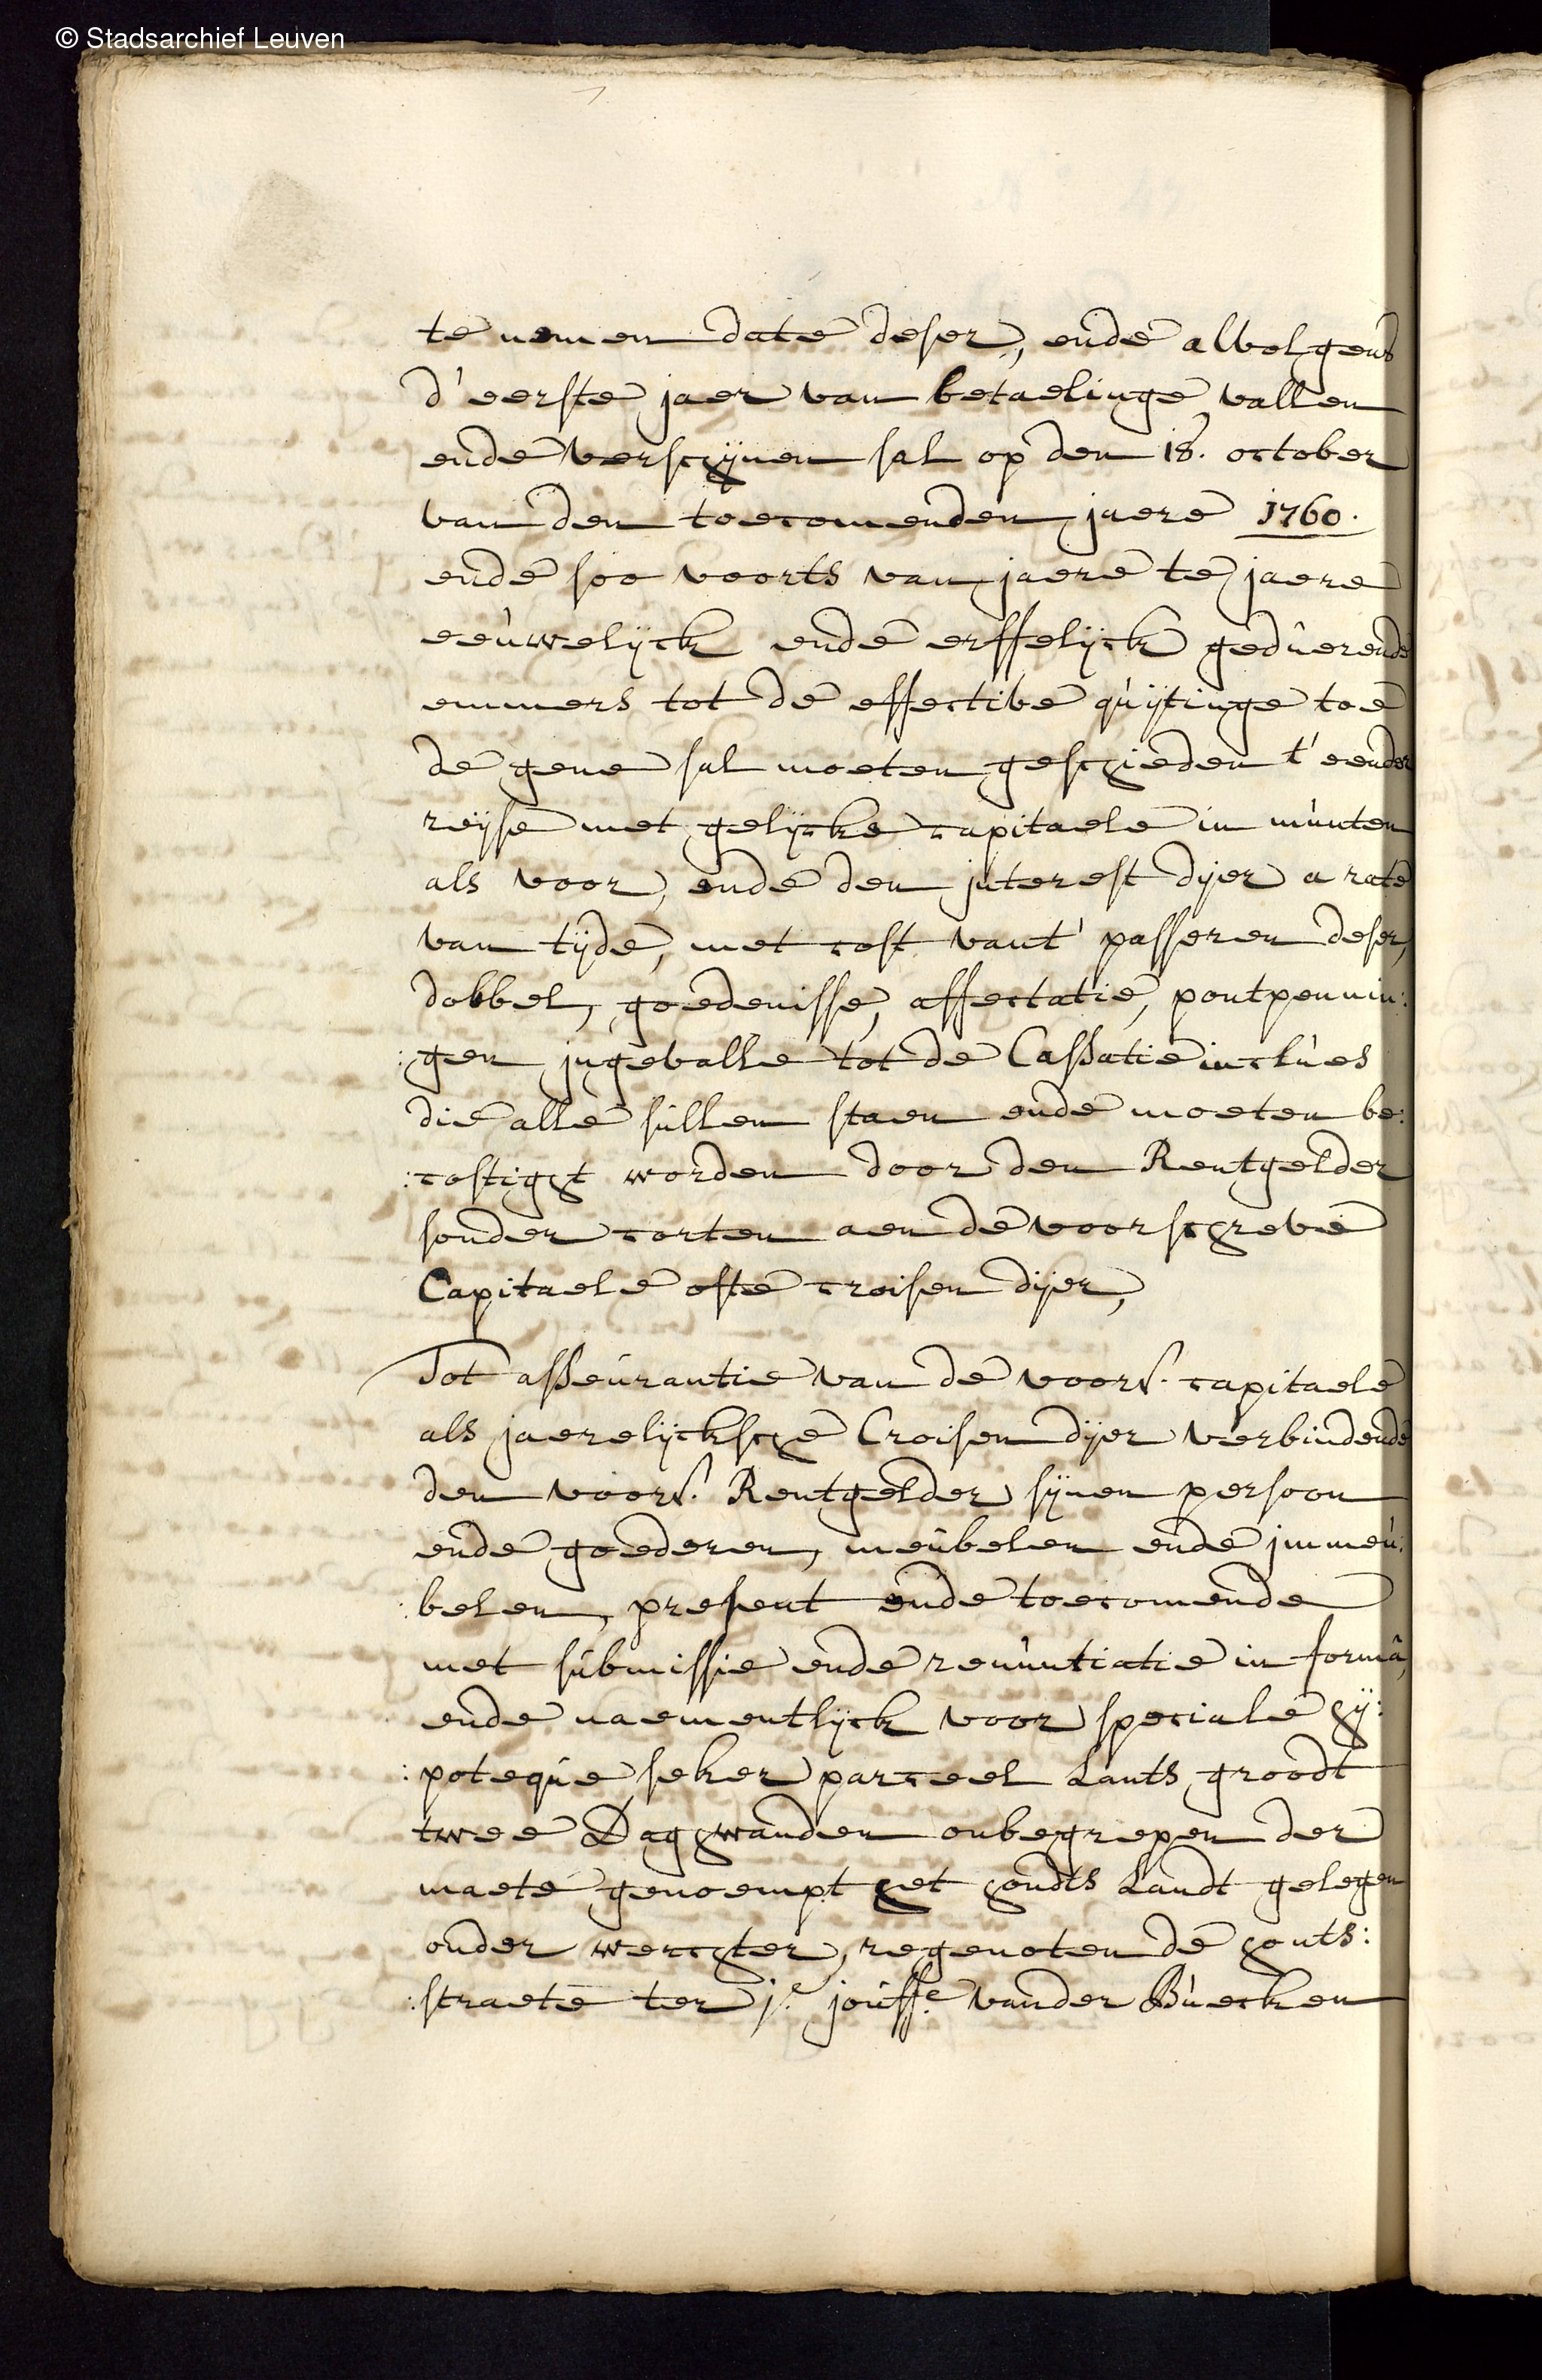 © Stadsarchief Leuven
te nemen date deser, ende alvolgens
d'eerste jaer van betaelinge vallen
ende verschijnen sal op den 18. october
van den toecomenden jaere 1760.
ende soo voorts van jaere te jaere
eeuwelijck ende erffelijck geduerende
emmers tot de effective quijtinge toe
de gene sal moeten geschieden t'eender
reijse met gelijcke capitaele in munten
als voor, ende den interest dijer a rate
van tijde, met cost vant' passeren deser,
dobbel, goedenisse, affectatie, pontpennin:
:gen ingevalle tot de Cassatie inclues
die alle sullen staen ende moeten be:
:costight worden door den Rentgelder
sonder corten aen de voorschreve
Capitaele ofte croisen dijer,
Tot asseurantie van de voors. capitaele
als jaerelijcksche Croisen dijer verbindende
den voors. Rentgelder sijnen persoon
ende goederen, meubelen ende immeu:
:belen, present ende toecomende
met submissie ende renuntiatie in formâ,
ende naementlijck voor speciale hÿ:
:poteque seker parceel Lants groodt
twee Daghwanden onbegrepen der
maete genoempt het hondts Landt gelegen
onder werchter, regenoten de honts:
:straete ter j.e jouffe. vander Buecken